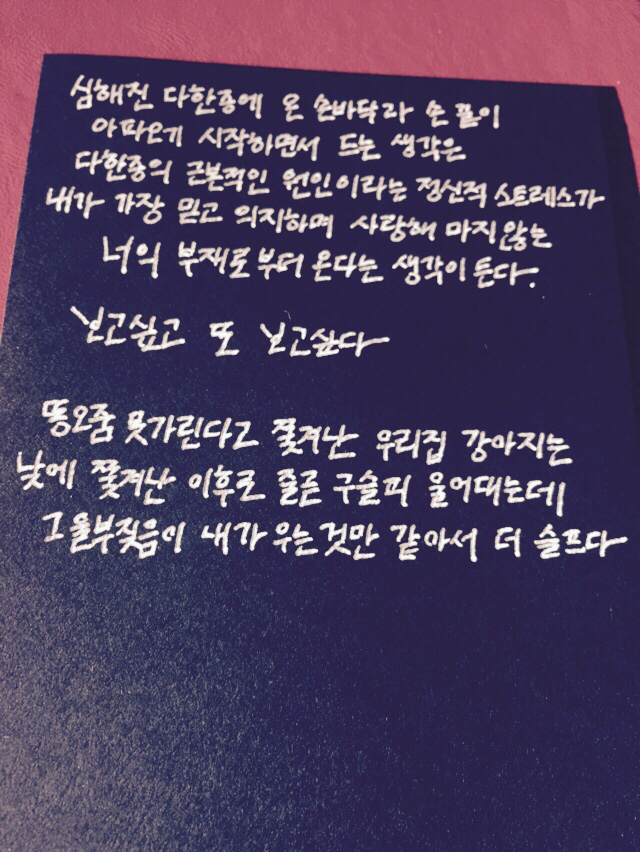 심해진 다한증에 온 손바닥과 손 끝이
아파오기 시작하면서 드는 생각은
다한증의 근본적인 원인이라는 정신적 스트레스가
내가 가장 믿고 의지하며 사랑해 마지않는
너의 부재로부터 온다는 생각이 든다.
보고싶고 또 보고싶다
똥오줌 못가린다고 쫓겨난 우리집 강아지는
낮에 쫓겨난 이후로 줄곧 구슬피 울어대는데
그 울부짖음이 내가 우는것만 같아서 더 슬프다